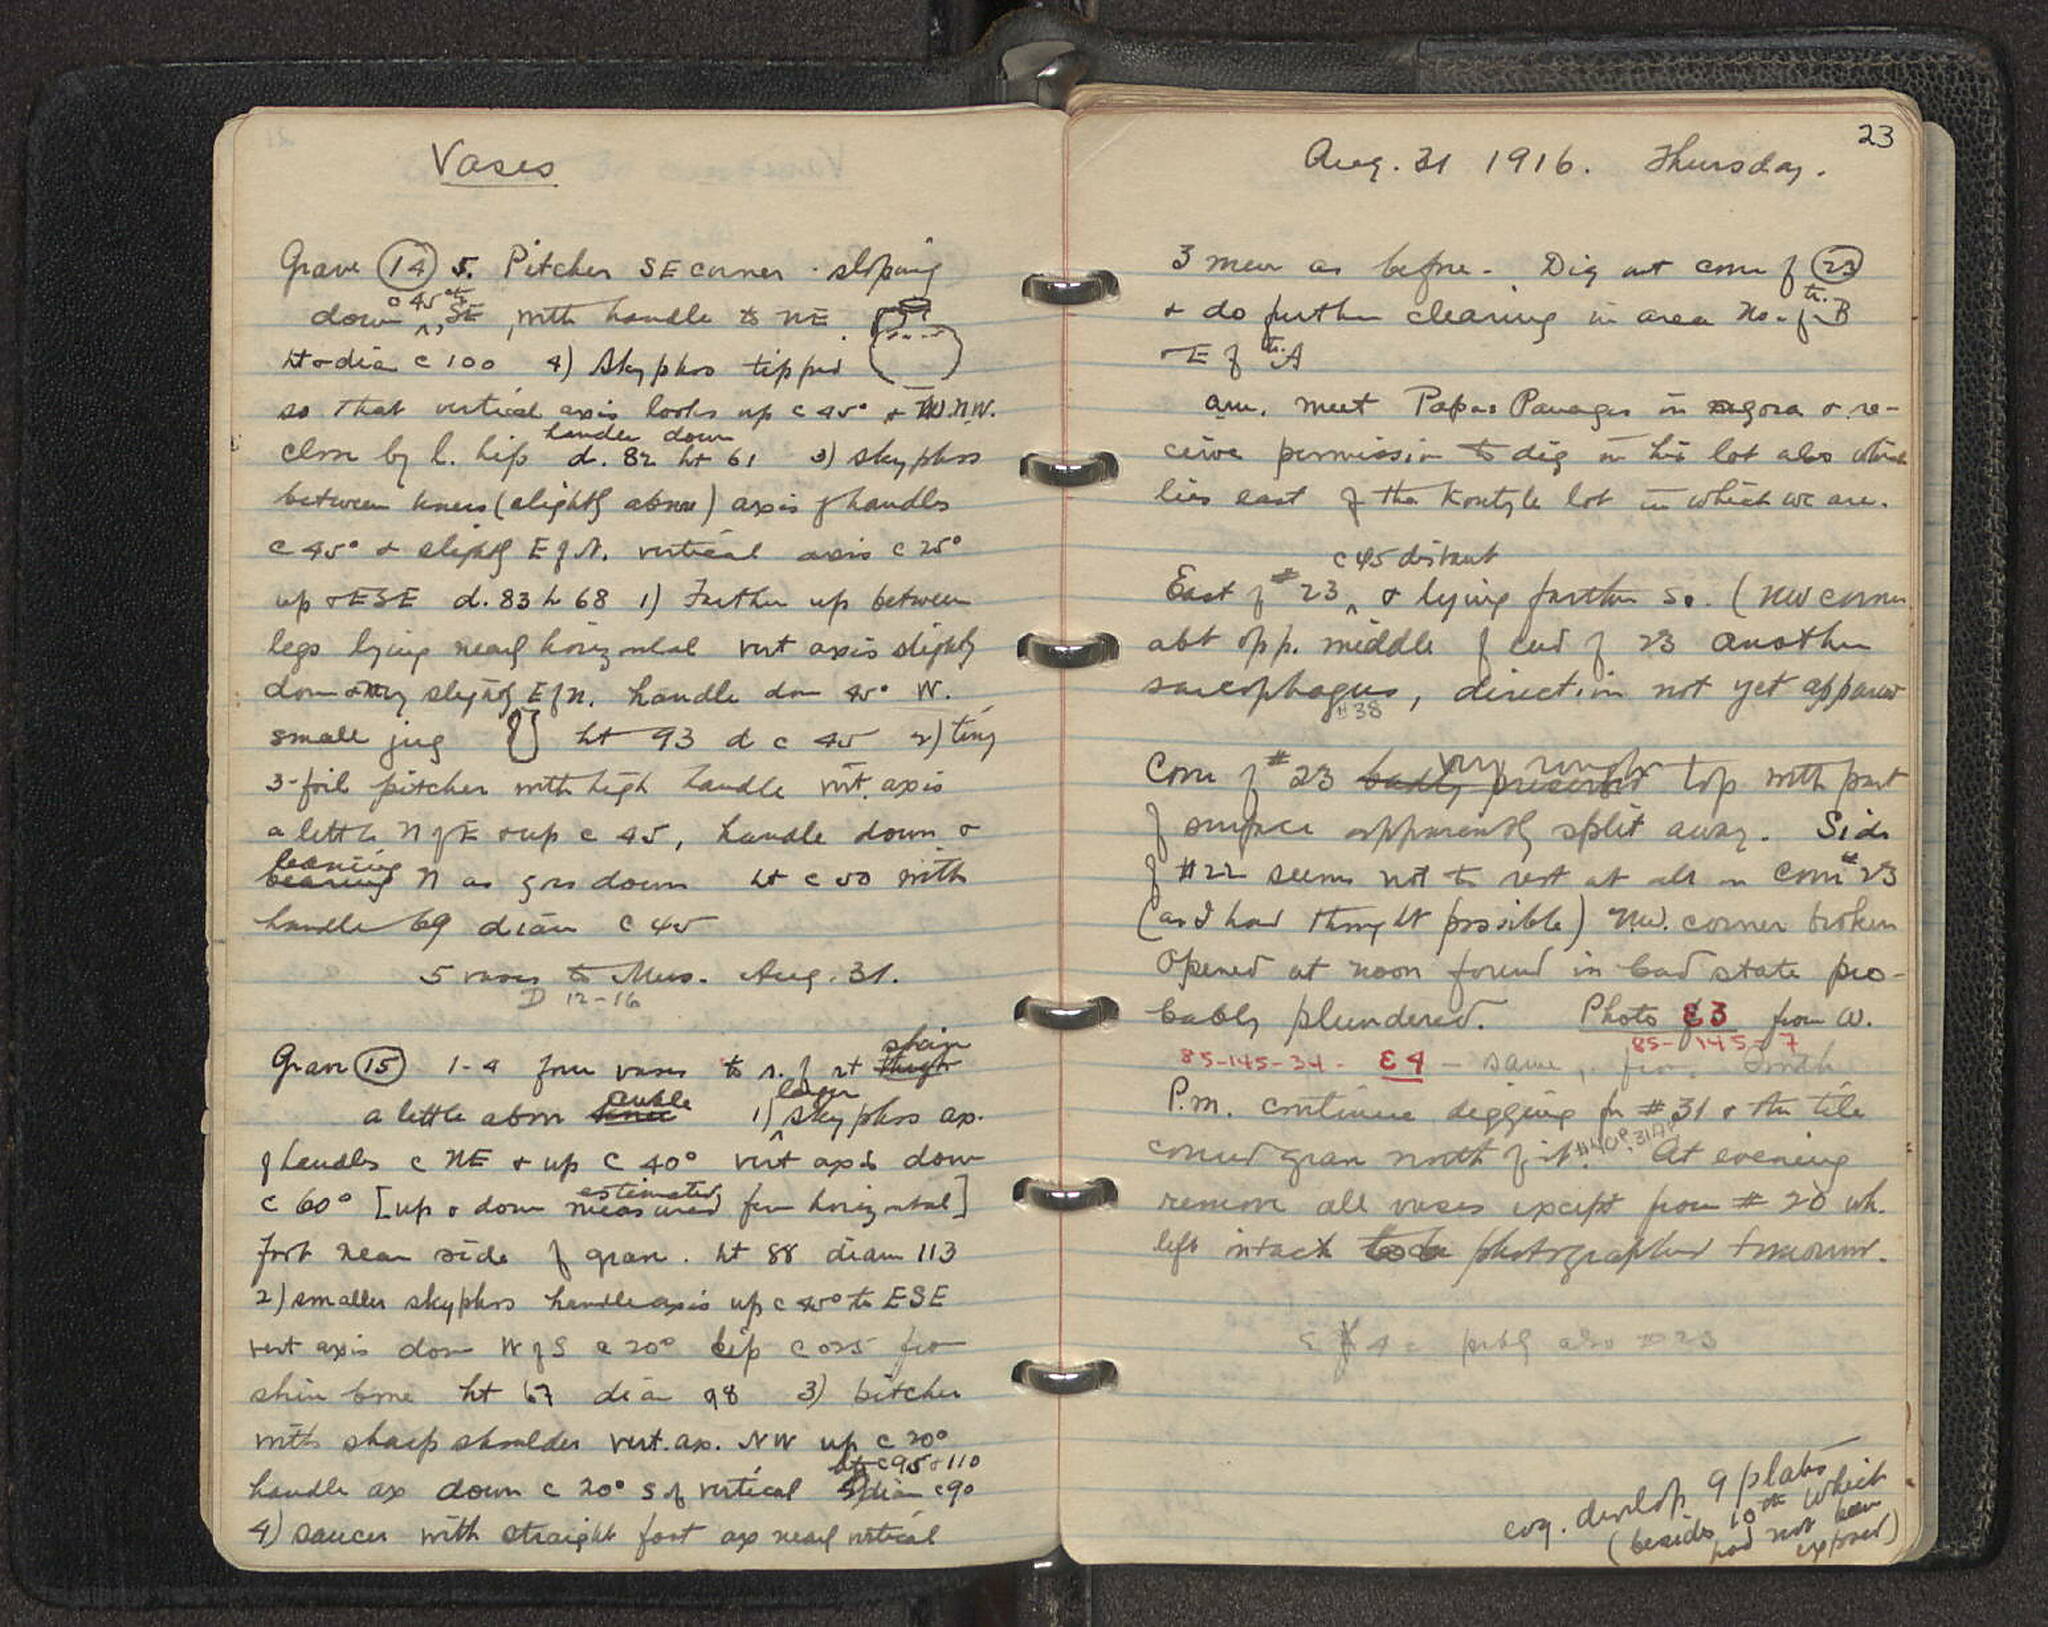 Vases
Grave 14 5. Pitcher SE corner - sloping
down c 45° SE, with handle to NE.
ht & dia c 100 4) Skyphos tipped
so that vertical axis looks up c 45° & W.N.W.
close by l. hip handles down d. 82 ht 61 3) skyphos
between knees (slightly above) axis of handles
c 45° & slightly E of N. vertical axis c 25°
up & ESE d. 83 h 68 1) Further up between
legs lying nearly horizontal vert axis slightly
down slightly E of N. handle down 45° W.
small jug ht 93 d c 45 2) tiny
3-foil pitcher with high handle vert. axis
a little N of E & up c 45, handle down &
leaning N as goes down ht c 50 with
handle 69 diam c 45
5 vases to Mus. Aug. 31.
D 12-16
Grave 15 1-4 four vases to r. of rt thigh shin
a little above knee ankle 1) larger skyphos ax.
of handles c NE & up c 40° vert axis down
c 60° [up & down measured estimated from horizontal]
foot near side of grave. ht 88 diam 113
2) smaller skyphos handle axis up c 45° to ESE
vert axis down W of S c 20° lip c 025 from
shin bone ht 67 diam 98 3) pitcher
with sharp shoulder vert. ax. NW up c 20°
handle ax down c 20° S of vertical ht c 95 & 110 diam c 90
4) saucer with straight foot ax nearly vertical
23
Aug. 31 1916. Thursday.
3 men as before - Dig out cover of 23
& do further clearing in area No. of tr. B
& E of tr. A
a.m. meet Papas Panages in agora & re-
ceive permission to dig in his lot also which
lies east of the Kontzle lot in which we are.
c 45 distant
East of #23 & lying further So. (NW corner
abt opp. middle of end of 23 another
sarcophagus, direction not yet apparent
#38
Cover of #23 badly preserved very rough top with part
of surface apparently split away. Side
of #22 seems not to rest at all on cover #23
(as I had thought possible) N.W. corner broken
Opened at noon found in bad state pro-
bably plundered. Photo E3 from W.
85-145-7
85-145-34 - E4 - same, from South
P.m. continue digging for #31 & the tile
covered grave north of it. #40 P. 31 Aft At evening
remove all vases except from #20 wh.
left intact to be photographed tomorrow.
E 4 c prbly also 23
evg. develop 9 plates
(besides 10th which
had not been
exposed)